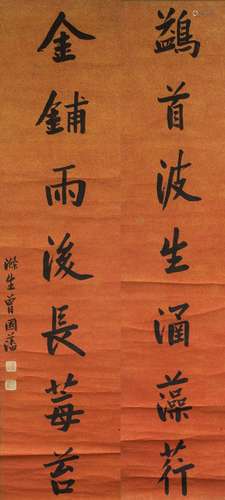 鷁首波生涵藻荇
金鋪雨後長莓苔
滌生曾國藩